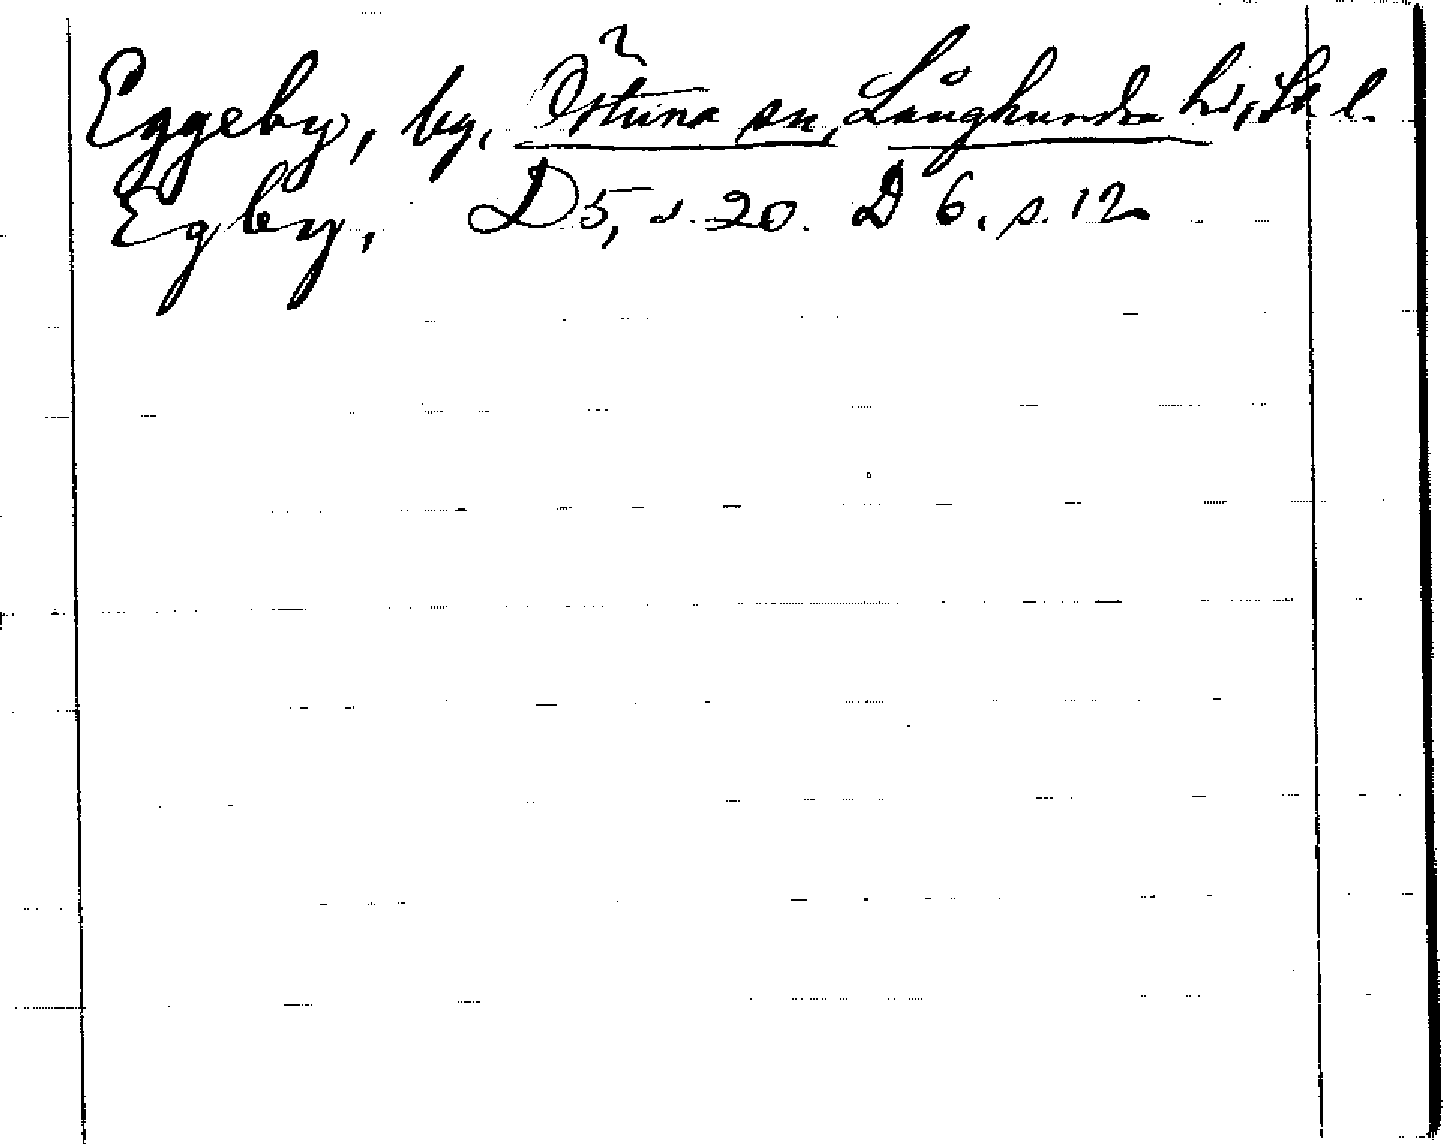 Eggeby, by, Östuna sn, Långhundra hd, Sth l.
Egby, D 5, s. 20. D 6. s. 12